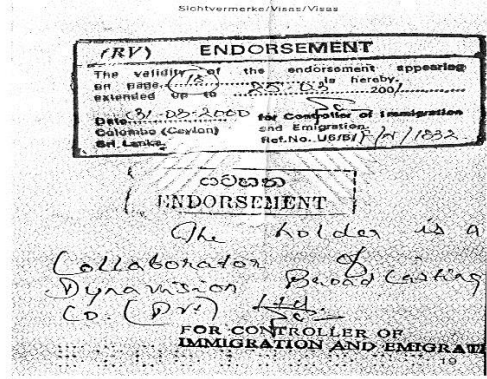 Sichtvermerke/Visas/Visas
(RV) ENDORSEMENT
The validity of the endorsement appearing
on page (15) is hereby
extended up to 25-03-2001
Date (31-03-2000 for Controller of Immigration
Colombo (Ceylon) and Emigration
Sri Lanka. Ref. No. U6/B/
ENDORSEMENT
The holder is a
Collaborator of
Dynavision Broadcasting
Co. (Pvt) Ltd
FOR CONTROLLER OF
IMMIGRATION AND EMIGRATI
19